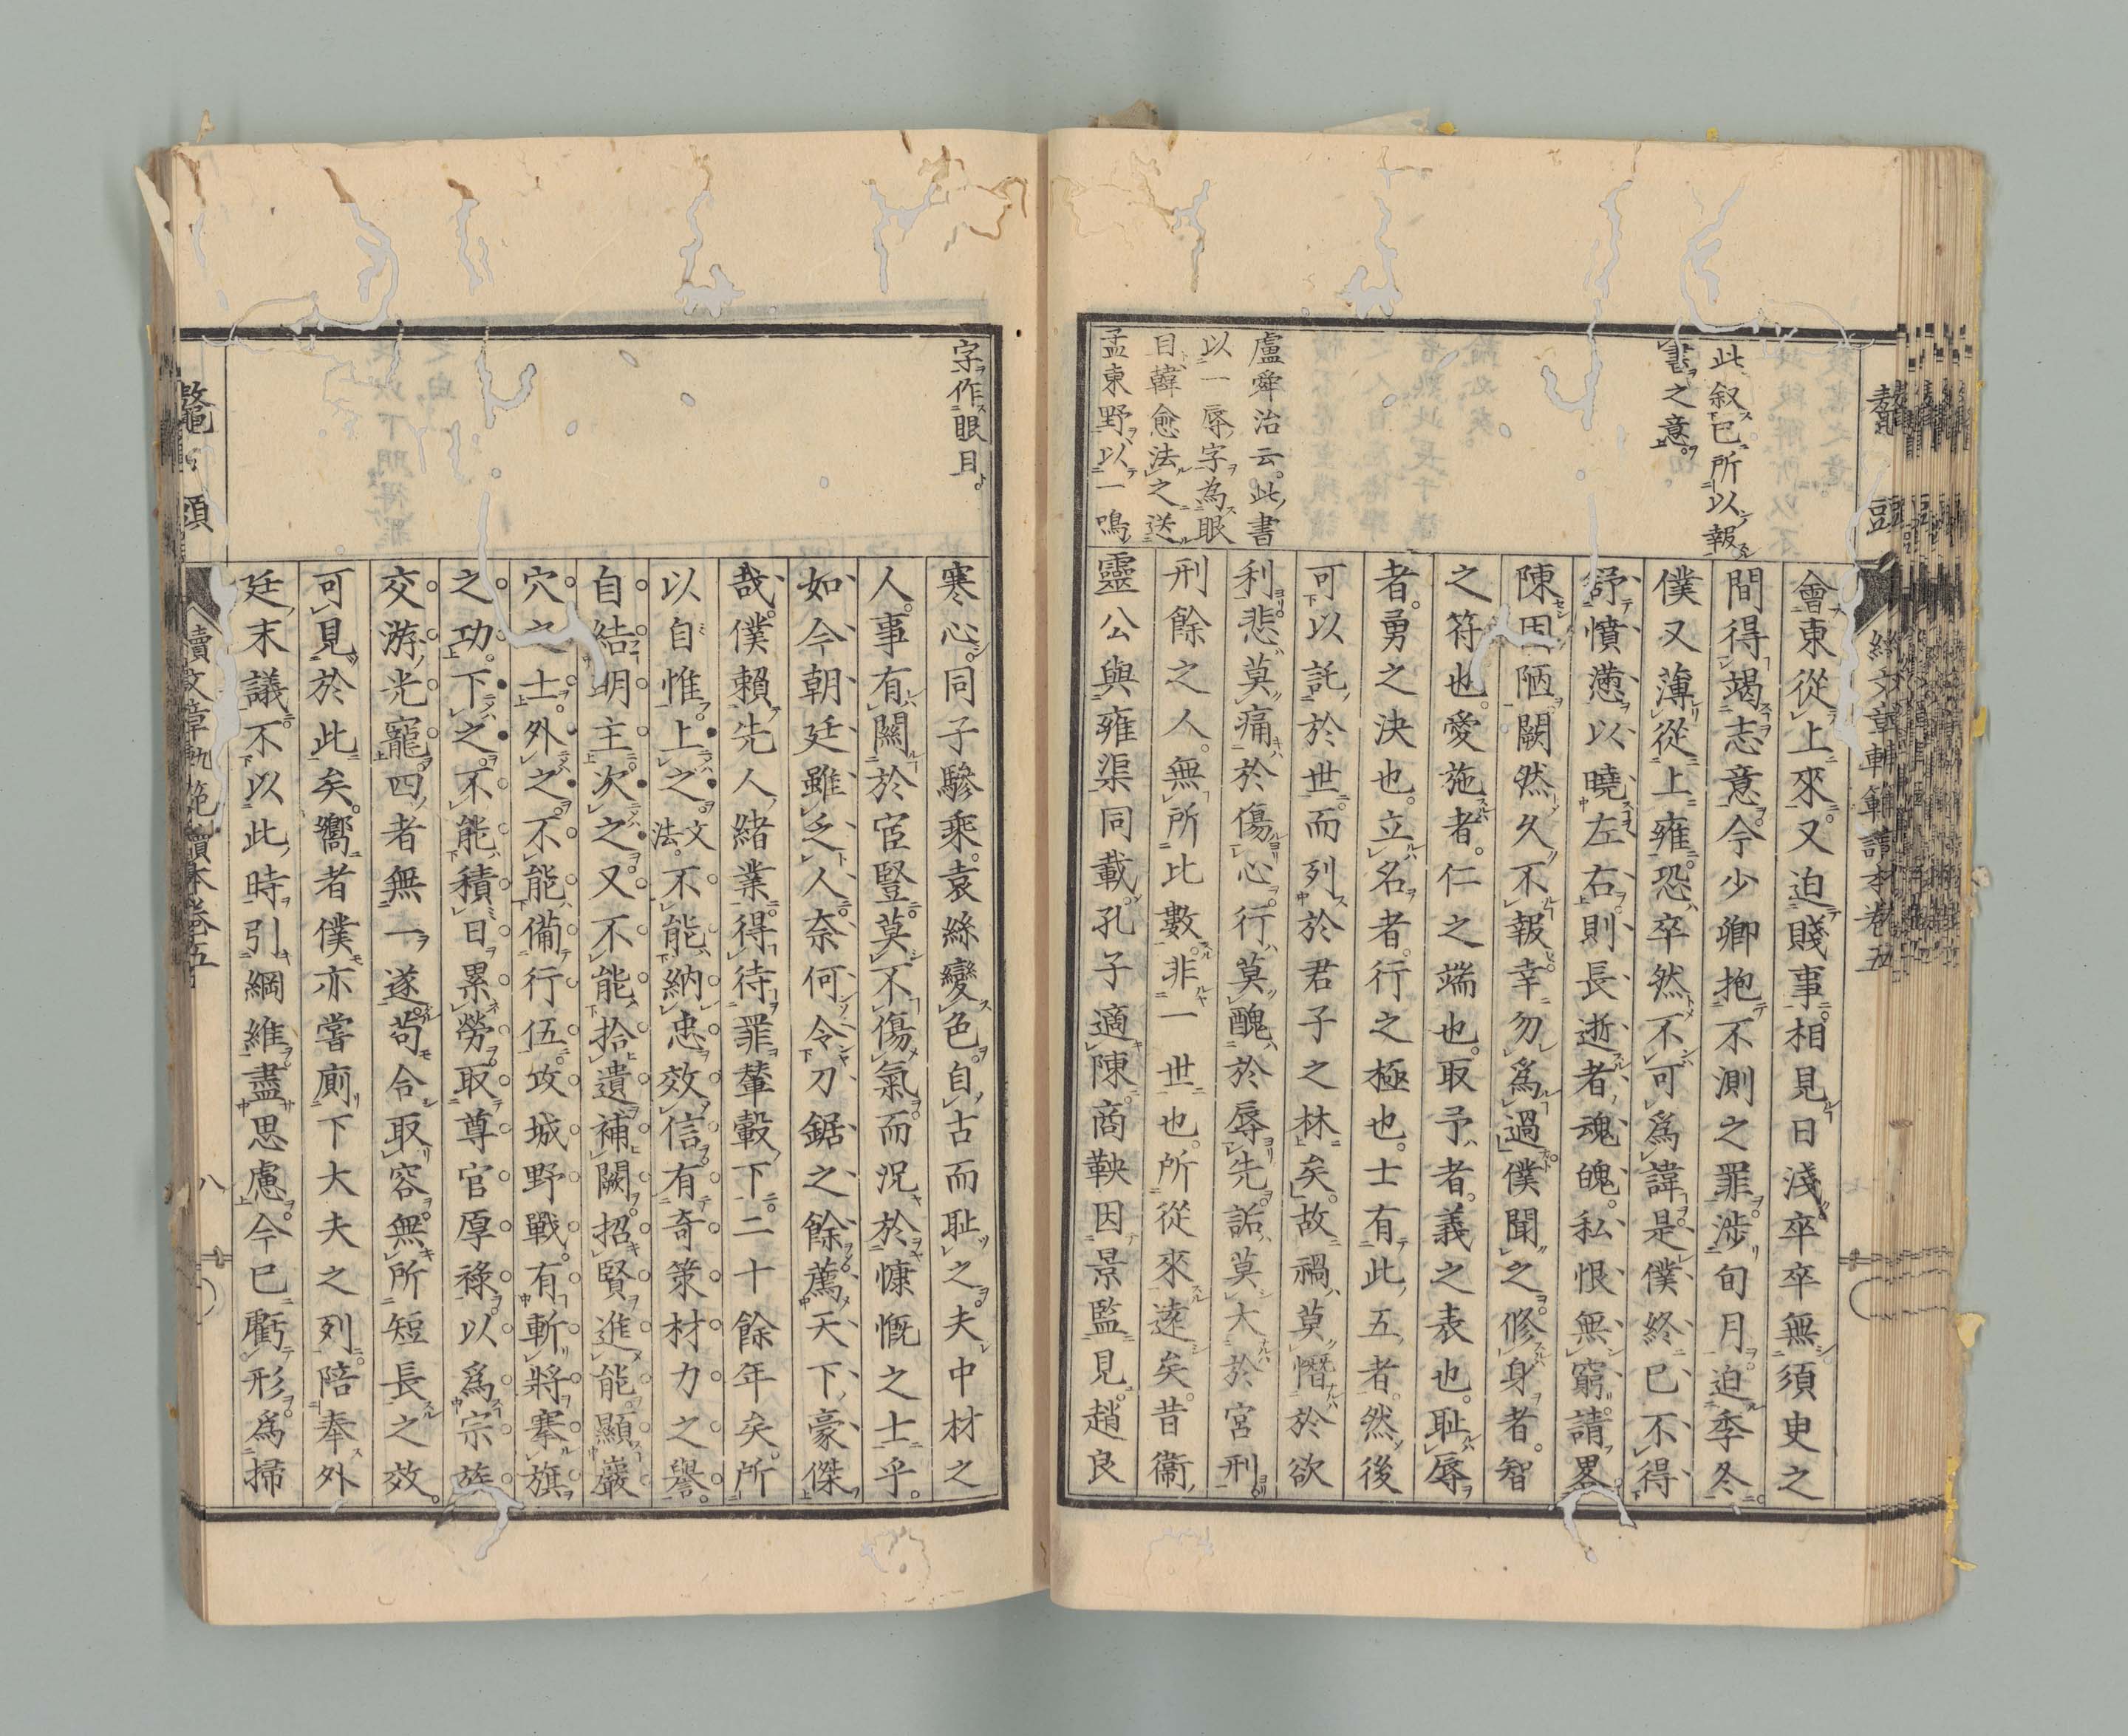 此叙已所以報
書之意。
盧舜治云。此書
以一辱字為眼
目韓愈法之送
孟東野以一鳴
會東從上來又迫賤事相見日淺卒卒無須史之
間得竭志意今少卿抱不測之罪涉旬月迫季冬
僕又薄從上雍恐卒然不可爲諱是僕終已不得
舒憤懣以曉左右則長逝者魂魄私恨無窮請畧
陳固陋闕然久不報幸勿爲過僕聞之修身者智
之符也。愛施者。仁之端也。取予者。義之表也。恥辱
者。勇之決也。立名者。行之極也。士有此五者。然後
可以託於世而列於君子之林矣。故禍莫憯於欲
利悲莫痛於傷心。行莫醜於辱。先詬莫大於宮刑
刑餘之人。無所比數。非一世也。所從來遠矣。昔衞
靈公與雍渠同載孔子適陳商鞅因景監見。趙良
字作眼目。
寒心同子驂乘。袁絲變色。自古而耻之夫中材之
人。事有關於宦豎莫不傷氣。而況於慷慨之士乎。
如今朝廷雖乏人奈何令刀鋸之餘薦天下豪傑
哉。僕賴先人緒業得待罪輦轂下。二十餘年矣。所
以自惟上之文法。不能納忠效信有奇策材力之譽。
自結明主次之又不能拾遺補闕招賢進能顯巖
穴之士。外之不能備行伍攻城野戰。有斬將搴旗
之功。下之。不能積日累勞取尊官厚祿以爲宗族
交游光寵四者無一遂苟合取容無所短長之效。
可見於此矣。嚮者僕亦嘗廁下大夫之列陪奉外
廷末議不以此時引綱維盡思慮今已虧形爲掃
鼇頭
續文章軌範讀本卷五
八